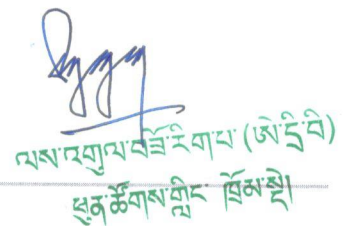 ལས་འགུལ་བཟོ་རིགཔ་ (ཨེ་དྲི་བི)
ཕུན་ཚོགས་གླིང་ ཁྲོམ་སྡེ།